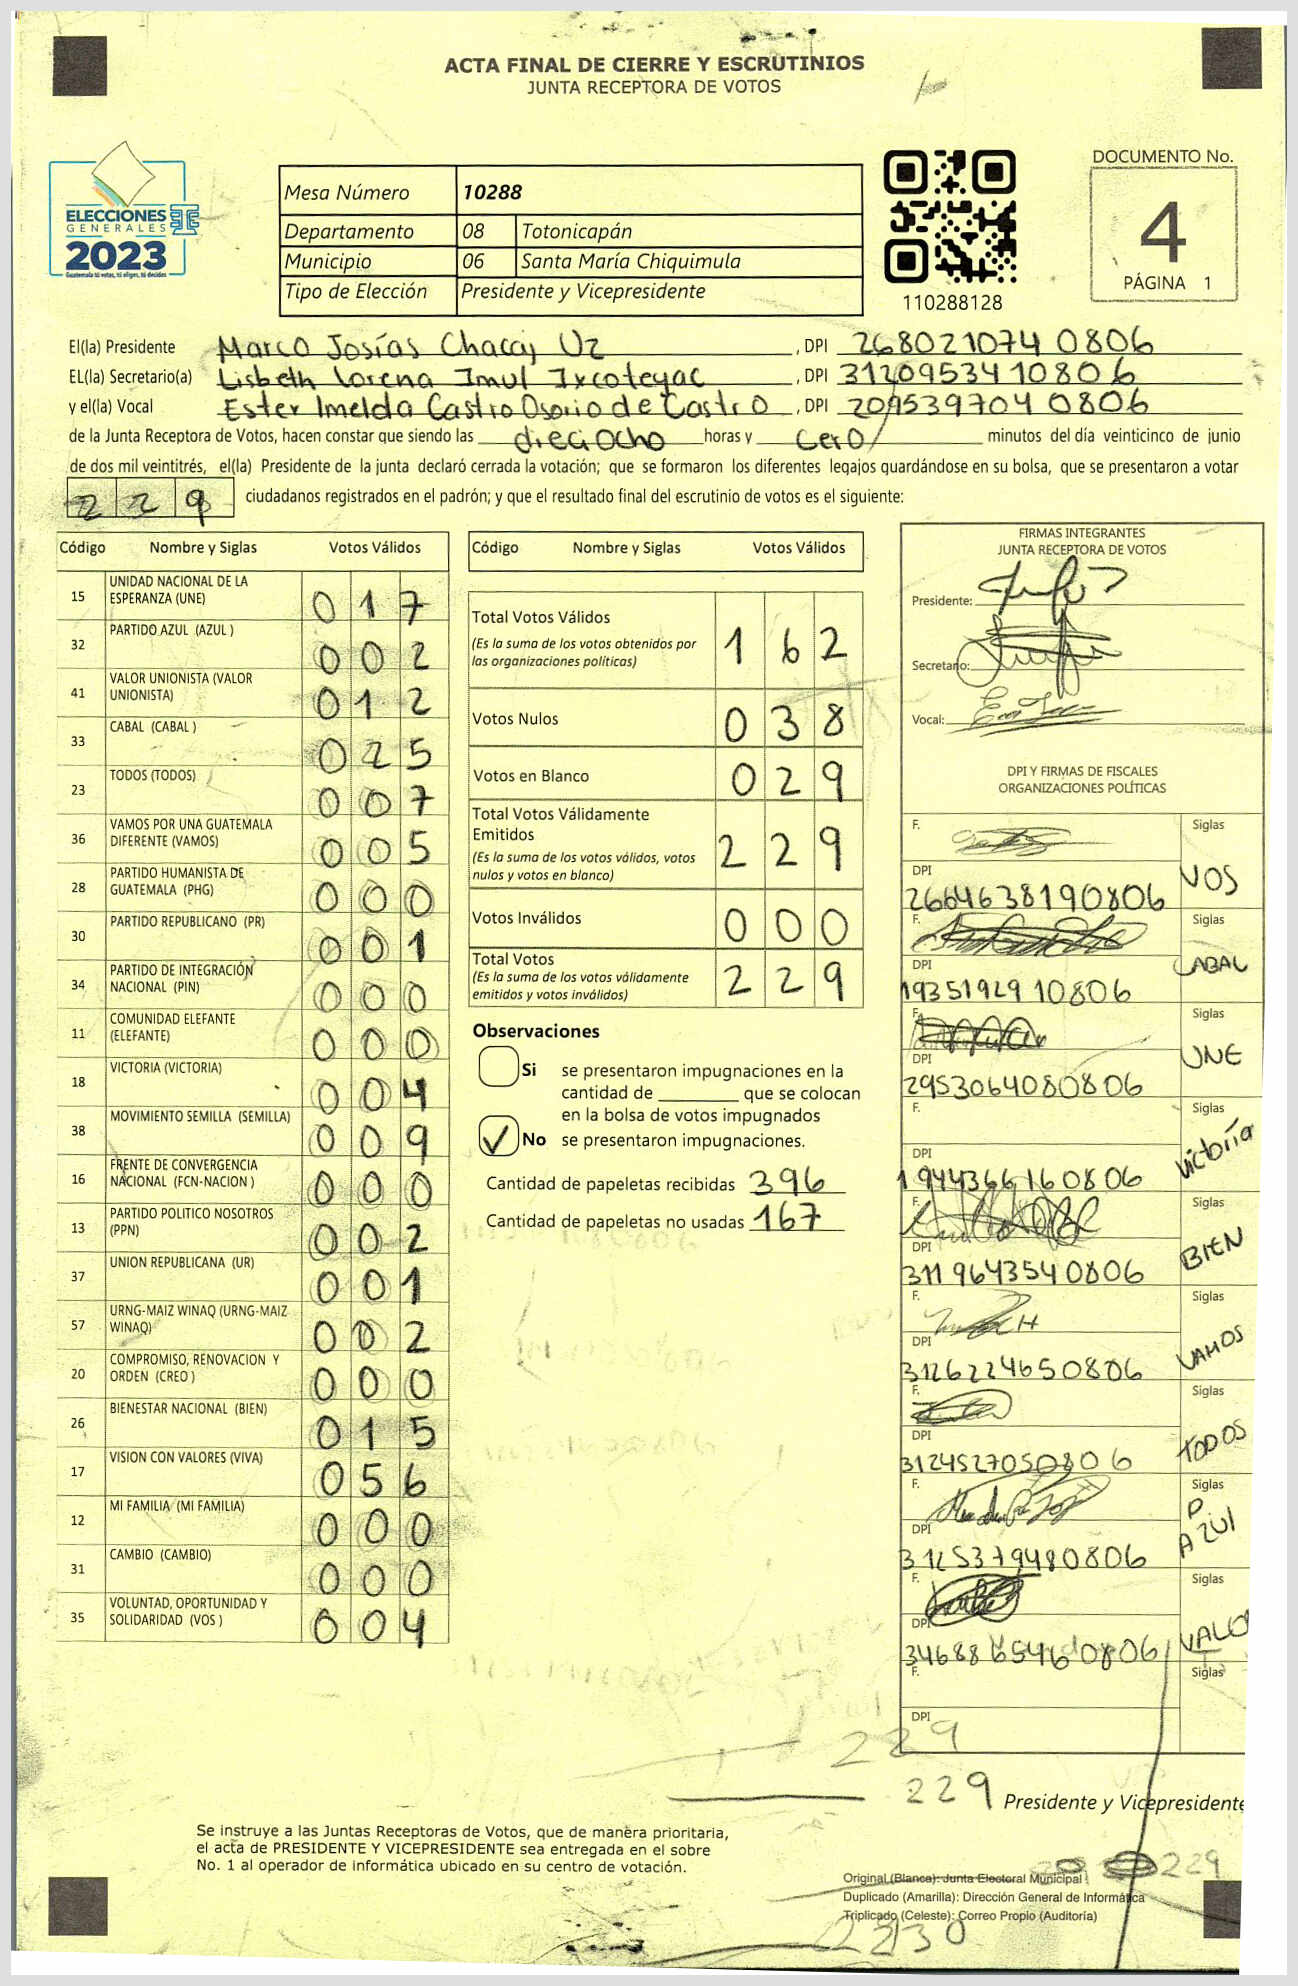 ACTA FINAL DE CIERRE Y ESCRUTINIOS
JUNTA RECEPTORA DE VOTOS
ELECCIONES
GENERALES
2023
Guatemala tú votas, tú eliges, tú decides
Mesa Número 10288
Departamento 08 Totonicapán
Municipio 06 Santa María Chiquimula
Tipo de Elección Presidente y Vicepresidente
110288128
DOCUMENTO No.
4
PÁGINA 1
El(la) Presidente Marco Josías Chacaj Uz, DPI 268021074 0806
EL(la) Secretario(a) Lisbeth Lorena Imul Ixcoteyac, DPI 3120953410806
y el(la) Vocal Ester Imelda Castro Osorio de Castro, DPI 209539704 0806
de la Junta Receptora de Votos, hacen constar que siendo las dieciocho horas y cero minutos del día veinticinco de junio
de dos mil veintitrés, el(la) Presidente de la junta declaró cerrada la votación; que se formaron los diferentes legajos guardándose en su bolsa, que se presentaron a votar
229 ciudadanos registrados en el padrón; y que el resultado final del escrutinio de votos es el siguiente:
Código Nombre y Siglas Votos Válidos
15 UNIDAD NACIONAL DE LA ESPERANZA (UNE) 017
32 PARTIDO AZUL (AZUL ) 002
41 VALOR UNIONISTA (VALOR UNIONISTA) 012
33 CABAL (CABAL ) 025
23 TODOS (TODOS) 007
36 VAMOS POR UNA GUATEMALA DIFERENTE (VAMOS) 005
28 PARTIDO HUMANISTA DE GUATEMALA (PHG) 000
30 PARTIDO REPUBLICANO (PR) 001
34 PARTIDO DE INTEGRACIÓN NACIONAL (PIN) 000
11 COMUNIDAD ELEFANTE (ELEFANTE) 000
18 VICTORIA (VICTORIA) 004
38 MOVIMIENTO SEMILLA (SEMILLA) 009
16 FRENTE DE CONVERGENCIA NACIONAL (FCN-NACION ) 000
13 PARTIDO POLITICO NOSOTROS (PPN) 002
37 UNION REPUBLICANA (UR) 001
57 URNG-MAIZ WINAQ (URNG-MAIZ WINAQ) 002
20 COMPROMISO, RENOVACION Y ORDEN (CREO ) 000
26 BIENESTAR NACIONAL (BIEN) 015
17 VISION CON VALORES (VIVA) 056
12 MI FAMILIA (MI FAMILIA) 000
31 CAMBIO (CAMBIO) 000
35 VOLUNTAD, OPORTUNIDAD Y SOLIDARIDAD (VOS ) 004
Código Nombre y Siglas Votos Válidos
Total Votos Válidos 162
(Es la suma de los votos obtenidos por las organizaciones políticas)
Votos Nulos 038
Votos en Blanco 029
Total Votos Válidamente Emitidos 229
(Es la suma de los votos válidos, votos nulos y votos en blanco)
Votos Inválidos 000
Total Votos 229
(Es la suma de los votos válidamente emitidos y votos inválidos)
Observaciones
Si se presentaron impugnaciones en la
cantidad de ________ que se colocan
en la bolsa de votos impugnados
✓ No se presentaron impugnaciones.
Cantidad de papeletas recibidas 396
Cantidad de papeletas no usadas 167
FIRMAS INTEGRANTES
JUNTA RECEPTORA DE VOTOS
Presidente:
Secretario:
Vocal:
DPI Y FIRMAS DE FISCALES
ORGANIZACIONES POLÍTICAS
F. Siglas VOS
DPI 2664638190806
F. Siglas CABAL
DPI 1935192910806
F. Siglas UNE
DPI 2953064080806
F. Siglas Victoria
DPI 1944366160806
F. Siglas BIEN
DPI 3119643540806
F. Siglas VAMOS
DPI 3126224650806
F. Siglas TODOS
DPI 3124527050806
F. Siglas P. AZUL
DPI 3125379480806
F. Siglas VALOR
DPI
F. Siglas
DPI
229
229
Presidente y Vicepresidente
Se instruye a las Juntas Receptoras de Votos, que de manera prioritaria,
el acta de PRESIDENTE Y VICEPRESIDENTE sea entregada en el sobre
No. 1 al operador de informática ubicado en su centro de votación.
229
Original (Blanca): Junta Electoral Municipal
Duplicado (Amarilla): Dirección General de Informática
Triplicado (Celeste): Correo Propio (Auditoría)